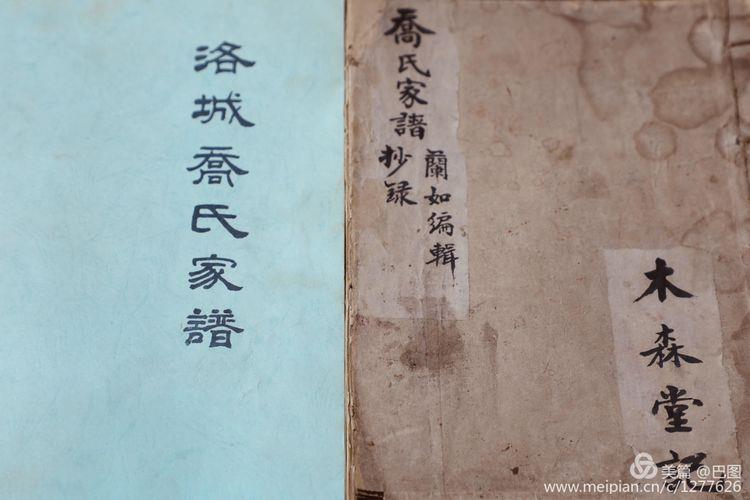 洛城喬氏家譜
喬氏家譜
抄録
蘭如編輯
木森堂記
美篇@巴图
www.meipian.cn/c/1277626